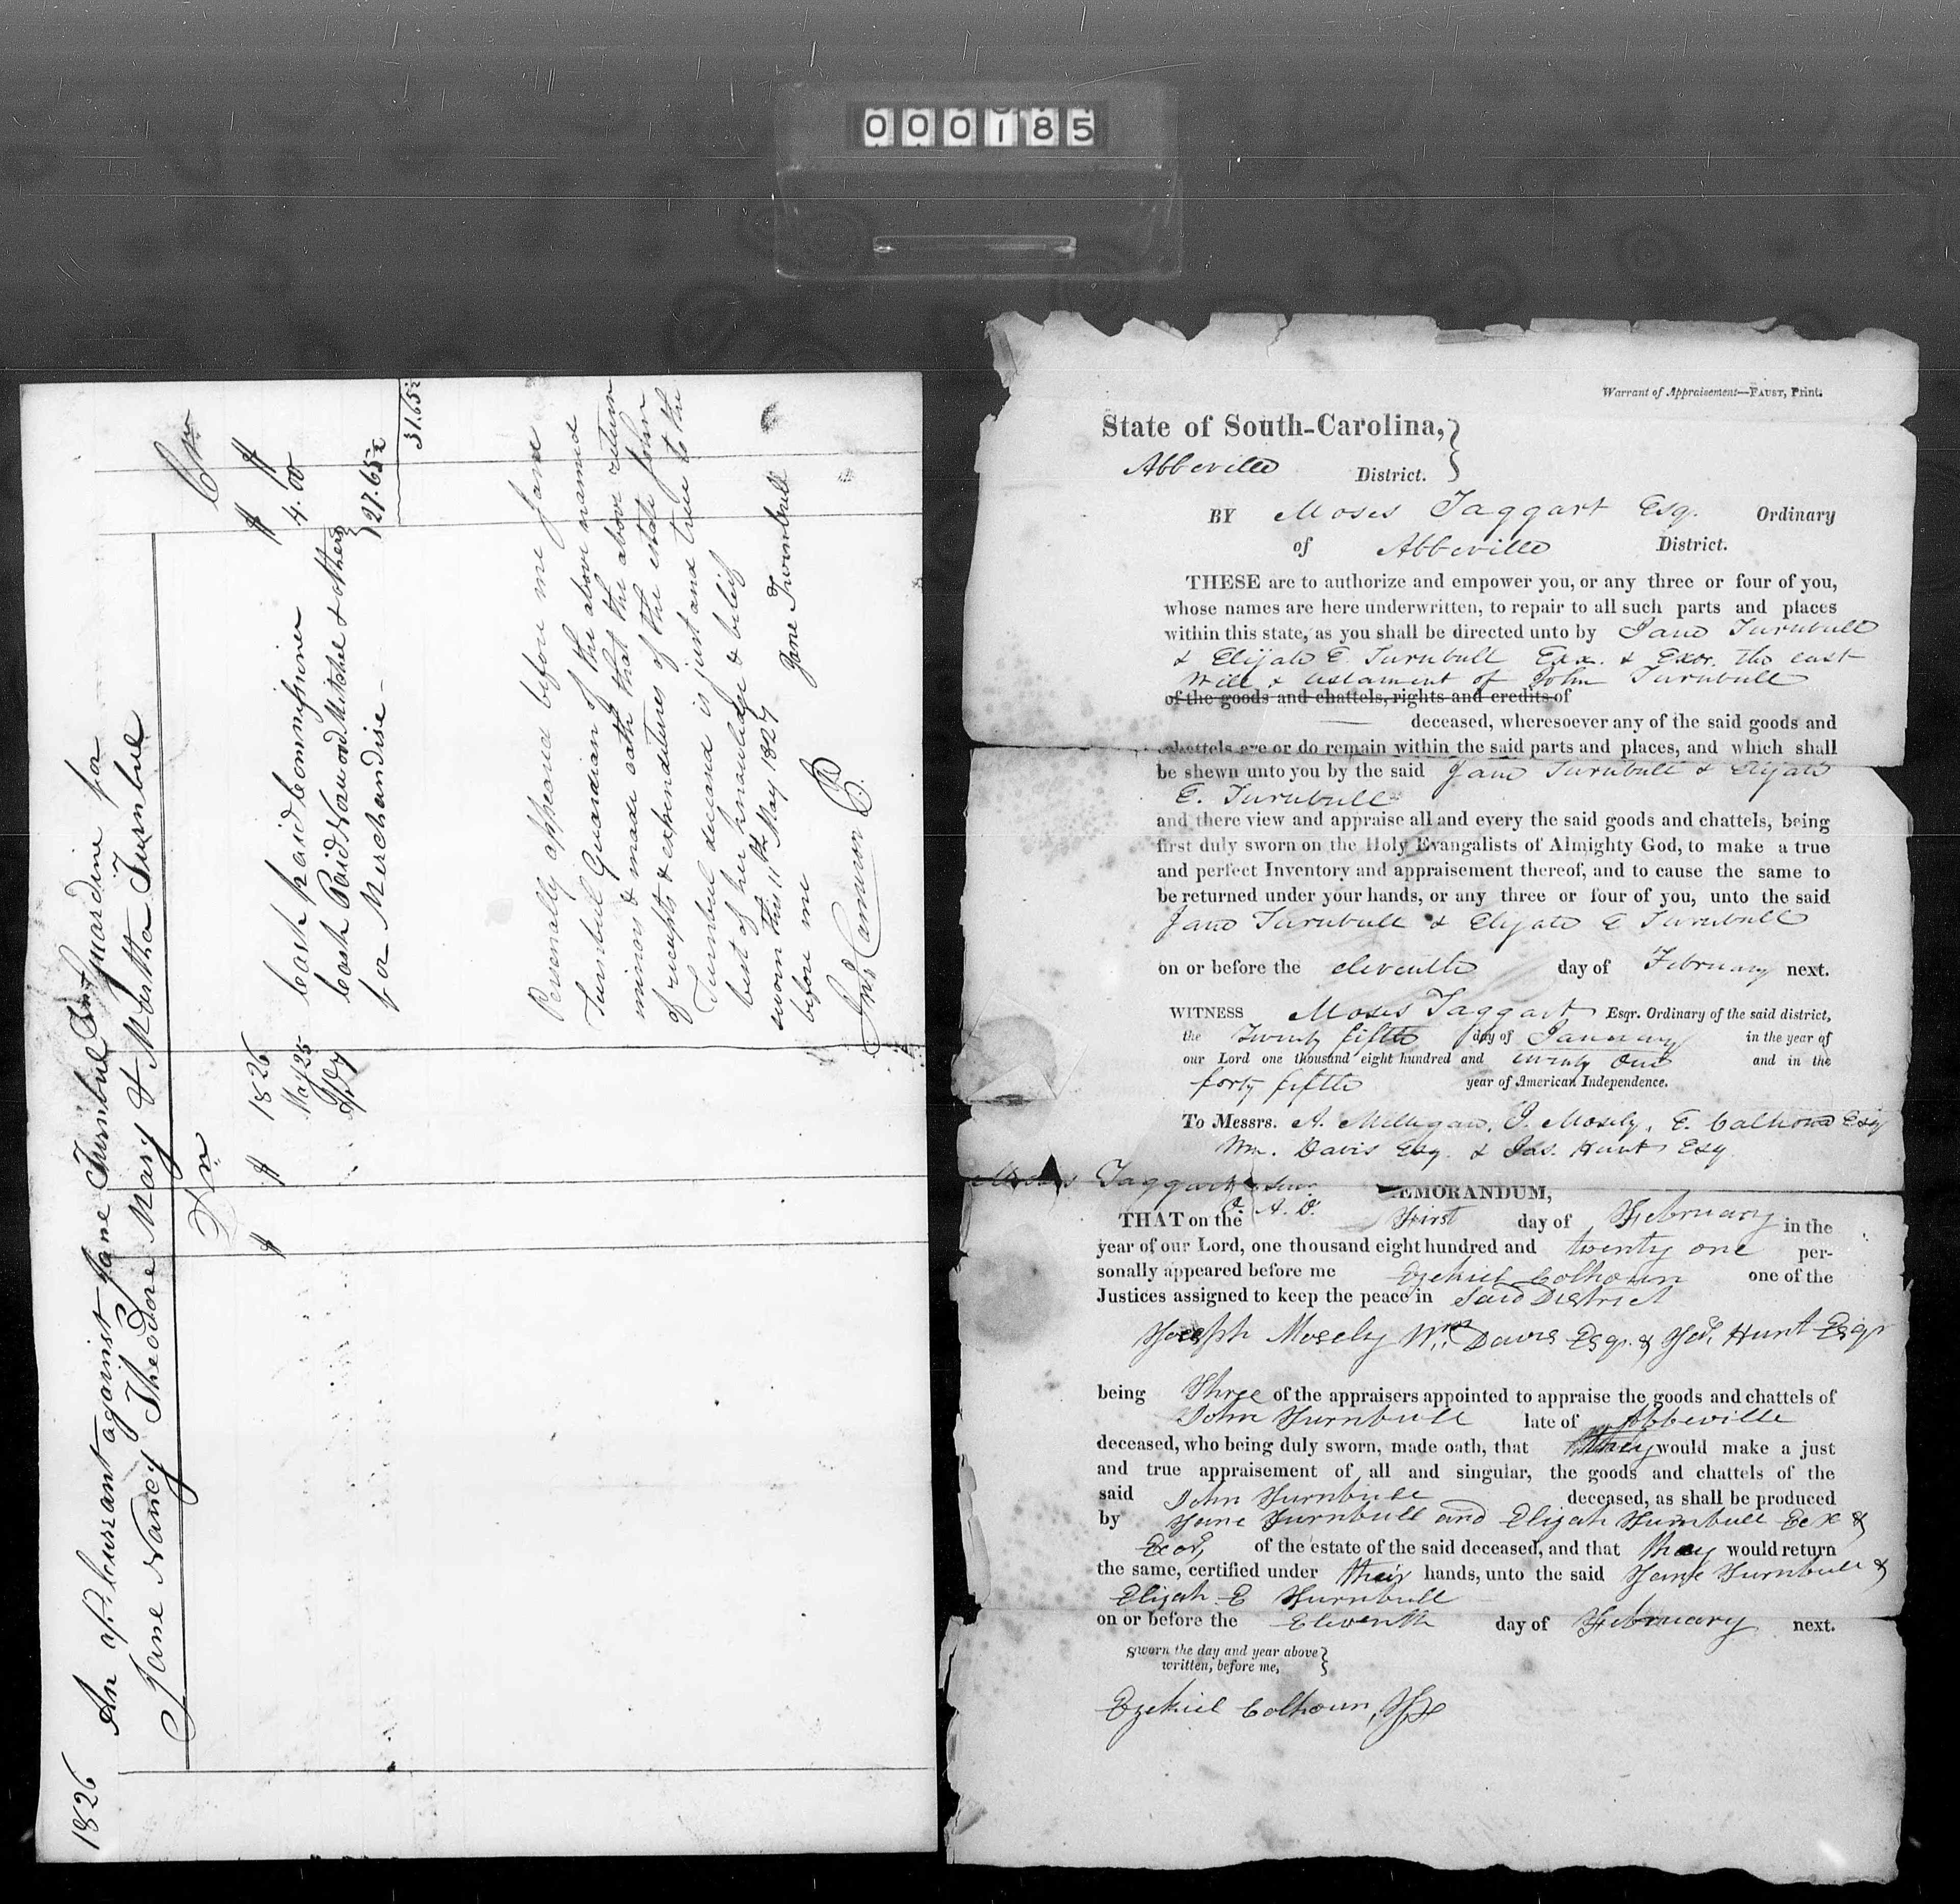 000185
1826 An ap Currant against Jane Turnbull guardine for
Jane Nancy Theodore Mary & Martha Turnbul
Dr Cr
$ $ 1826 $ $
May 25 Cash paid Commissiner 4.00
Cash Paid Norwood Mitchel & others }
for Merchandise — } 27.65½
31.65½
Personally appeared before me Jane
Turnbull Guardian of the above named
minors & made oath that the above return
of receipts & expenditures of the estate of John
Turnbul deceasd is just and true to the
best of her knowledge & belief
sworn this 11th May 1827
before me Jane Turnbull
Warrant of Appraisement—FAUST, Print.
State of South-Carolina, }
Abbeville District. }
BY Moses Taggart Esq. Ordinary
of Abbeville District.
THESE are to authorize and empower you, or any three or four of you,
whose names are here underwritten, to repair to all such parts and places
within this state, as you shall be directed unto by Jane Turnbull
& Elijah E. Turnbull Exx. & Exor. the last
Will & testament of John Turnbull
of the goods and chattels, rights and credits of
deceased, wheresoever any of the said goods and
chattels are or do remain within the said parts and places, and which shall
be shewn unto you by the said Jane Turnbull & Elijah
E. Turnbull
and there view and appraise all and every the said goods and chattels, being
first duly sworn on the Holy Evangalists of Almighty God, to make a true
and perfect Inventory and appraisement thereof, and to cause the same to
be returned under your hands, or any three or four of you, unto the said
Jane Turnbull & Elijah E Turnbull
on or before the eleventh day of February next.
WITNESS Moses Taggart Esqr. Ordinary of the said district,
the Twenty fifth day of January in the year of
our Lord one thousand eight hundred and twenty one and in the
forty fifth year of American Independence.
To Messrs. A. Milligan, J. Mosely, E. Calhoun Esq
Wm. Davis Esq. & Jas. Hunt Esq
Moses Taggart
O. A. D.
MEMORANDUM,
THAT on the First day of February in the
year of our Lord, one thousand eight hundred and twenty one per-
sonally appeared before me Ezekiel Colhoun one of the
Justices assigned to keep the peace in Said District
Joseph Mosely Wm. Davis Esqr. & Jas. Hunt Esqr
being Three of the appraisers appointed to appraise the goods and chattels of
John Turnbull late of Abbeville
deceased, who being duly sworn, made oath, that they would make a just
and true appraisement of all and singular, the goods and chattels of the
said John Turnbull deceased, as shall be produced
by Jane Turnbull and Elijah Turnbull Eex &
Exor, of the estate of the said deceased, and that they would return
the same, certified under their hands, unto the said Jane Turnbull &
Elijah E Turnbull
on or before the Eleventh day of February next.
Sworn the day and year above }
written, before me, }
Ezekiel Colhoun, JP